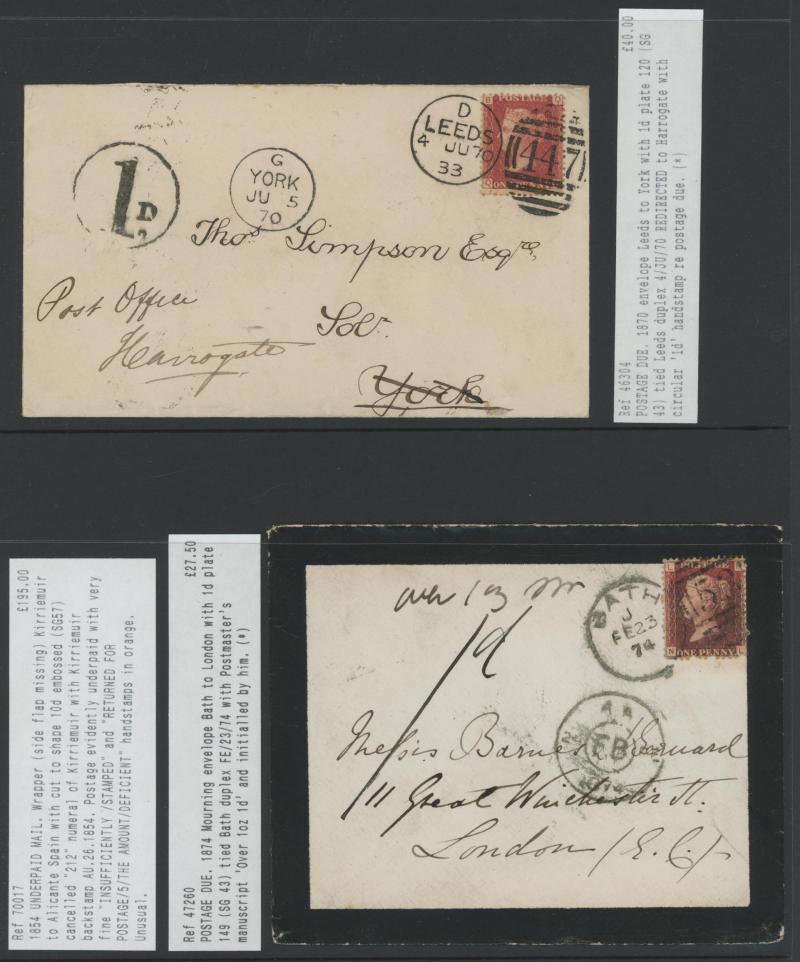 D
LEEDS
4 JU 70
33
POSTAGE
447
ONE PENNY
1D.
G
YORK
JU 5
70
Thos Simpson Esqre,
Solr
York
Post Office
Harrogate
Ref 46304 £40.00
POSTAGE DUE. 1870 envelope Leeds to York with 1d plate 120 (SG
43) tied Leeds duplex 4/JU/70 REDIRECTED to Harrogate with
circular '1d' handstamp re postage due. (*)
Ref 70017 £195.00
1854 UNDERPAID MAIL. Wrapper (side flap missing) Kirriemuir
to Alicante Spain with cut to shape 10d embossed (SG57)
cancelled "212" numeral of Kirriemuir with Kirriemuir
backstamp AU.26.1854. Postage evidently underpaid with very
fine "INSUFFICIENTLY /STAMPED" and "RETURNED FOR
POSTAGE/5/THE AMOUNT/DEFICIENT" handstamps in orange.
Unusual.
Ref 47260 £27.50
POSTAGE DUE. 1874 Mourning envelope Bath to London with 1d plate
149 (SG 43) tied Bath duplex FE/23/74 with Postmaster's
manuscript 'Over 1oz 1d' and initialled by him. (*)
over 1 oz
1d
BATH
J
FE 23
74
POSTAGE
ONE PENNY
N L
EB
Messrs Barnes Bernard
11 Great Winchester St.
London (E.C).